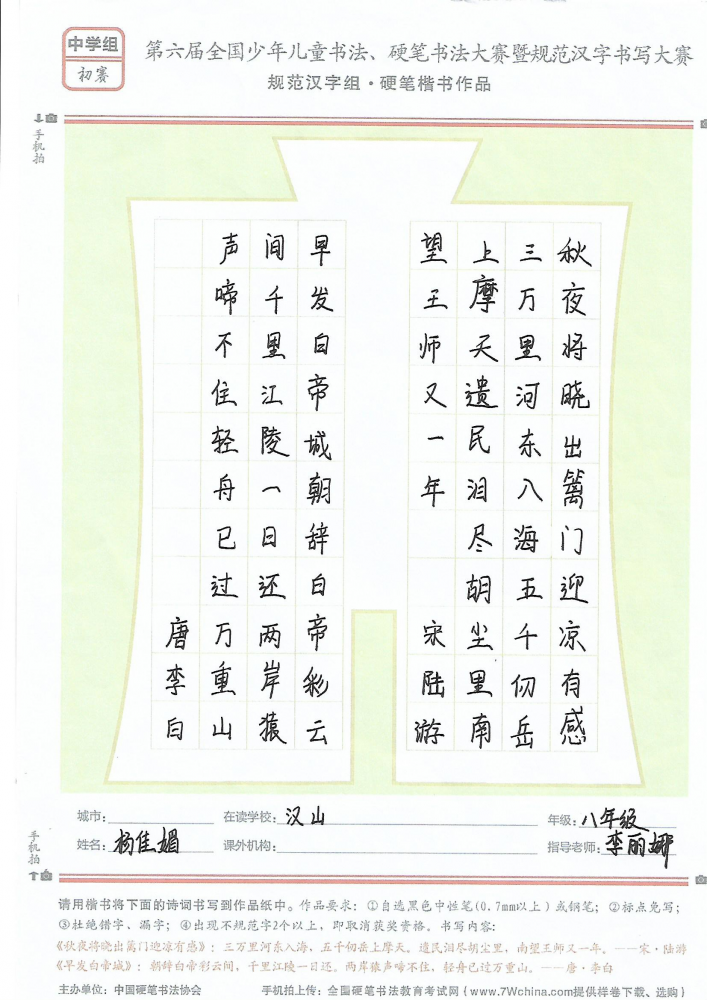 中学组
初赛
第六届全国少年儿童书法、硬笔书法大赛暨规范汉字书写大赛
规范汉字组·硬笔楷书作品
手机拍
秋夜将晓出篱门迎凉有感
三万里河东入海五千仞岳
上摩天遗民泪尽胡尘里南
望王师又一年 宋陆游
早发白帝城朝辞白帝彩云
间千里江陵一日还两岸猿
声啼不住轻舟已过万重山
唐李白
城市:
在读学校: 汉山
年级: 八年级
姓名: 杨佳媚
课外机构:
指导老师: 李丽娜
手机拍
请用楷书将下面的诗词书写到作品纸中。作品要求:①自选黑色中性笔(0.7mm以上)或钢笔;②标点免写;
③杜绝错字、漏字;④出现不规范字2个以上,即取消获奖资格。书写内容:
《秋夜将晓出篱门迎凉有感》:三万里河东入海,五千仞岳上摩天。遗民泪尽胡尘里,南望王师又一年。——宋·陆游
《早发白帝城》:朝辞白帝彩云间,千里江陵一日还。两岸猿声啼不住,轻舟已过万重山。——唐·李白
主办单位:中国硬笔书法协会
手机拍上传:全国硬笔书法教育考试网{www.7Wchina.com提供样卷下载、选购}